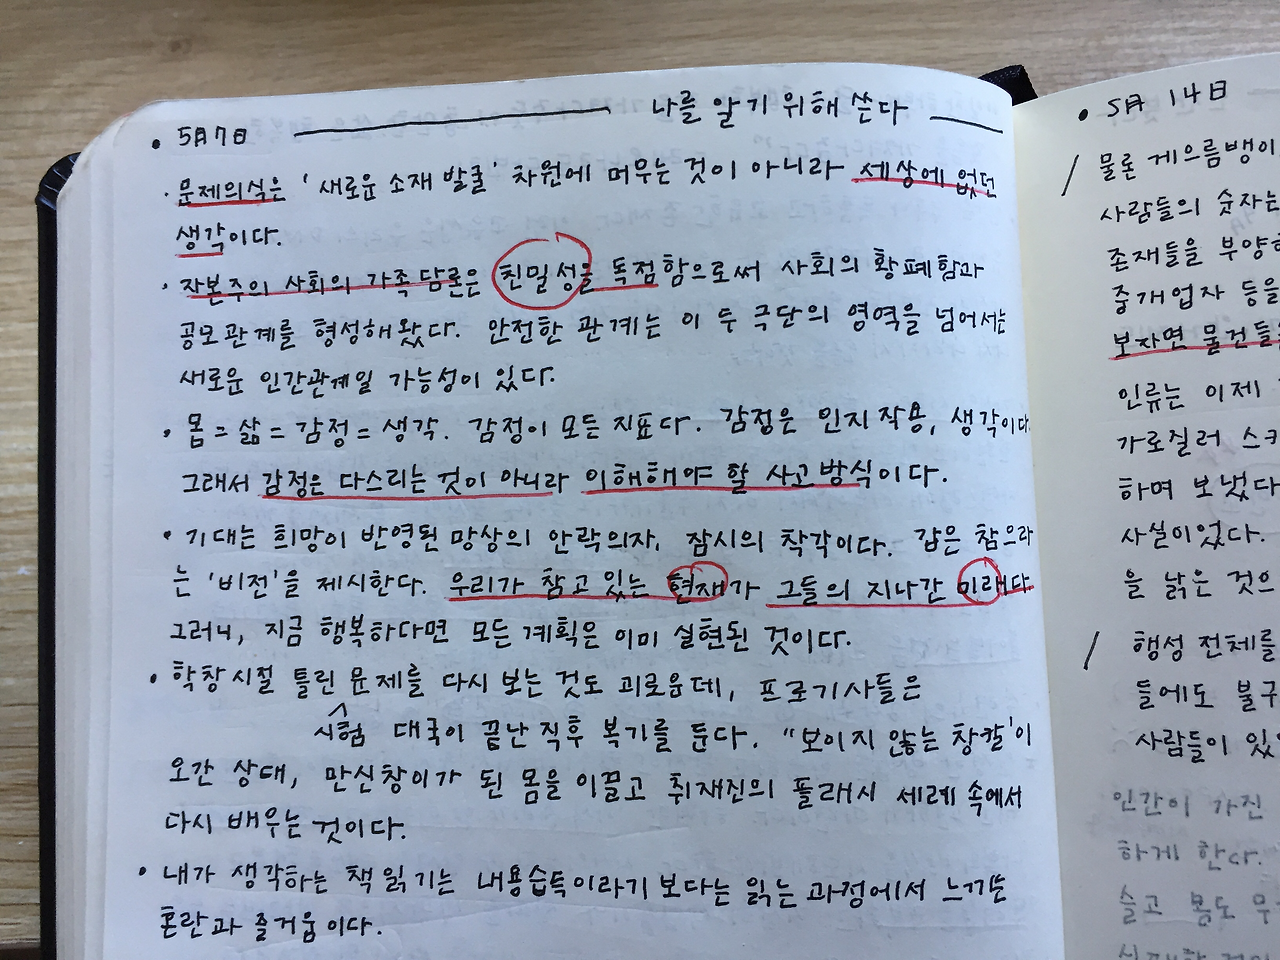 • 5月7日 ——— 나를 알기 위해 쓴다 —
· 문제의식은 '새로운 소재 발굴' 차원에 머무는 것이 아니라 세상에 없던
생각이다.
· 자본주의 사회의 가족 담론은 친밀성을 독점함으로써 사회의 황폐함과
공모관계를 형성해왔다. 안전한 관계는 이 두 극단의 영역을 넘어서는
새로운 인간관계일 가능성이 있다.
· 몸 = 삶 = 감정 = 생각. 감정이 모든 지표다. 감정은 인지 작용, 생각이다.
그래서 감정은 다스리는 것이 아니라 이해해야 할 사고방식이다.
• 기대는 희망이 반영된 망상의 안락의자, 잠시의 착각이다. 갑은 참으라
는 '비전'을 제시한다. 우리가 참고 있는 현재가 그들의 지나간 미래다
그러니, 지금 행복하다면 모든 계획은 이미 실현된 것이다.
• 학창시절 틀린 문제를 다시 보는 것도 괴로운데, 프로기사들은
시험 대국이 끝난 직후 복기를 둔다. "보이지 않는 창칼'이
오간 상태, 만신창이가 된 몸을 이끌고 취재진의 플래시 세례 속에서
다시 배우는 것이다.
• 내가 생각하는 책 읽기는 내용습득이라기 보다는 읽는 과정에서 느끼는
혼란과 즐거움이다.
• 5月 14日
/ 물론 게으름뱅이
사람들의 숫자는
존재들을 부양하
중개업자 등을
보자면 물건들을
인류는 이제
가로질러 스키
하며 보냈다
사실이었다.
을 낡은 것으
/ 행성 전체를
들에도 불구
사람들이 있었
인간이 가진
하게 한다.
슬고 몸도